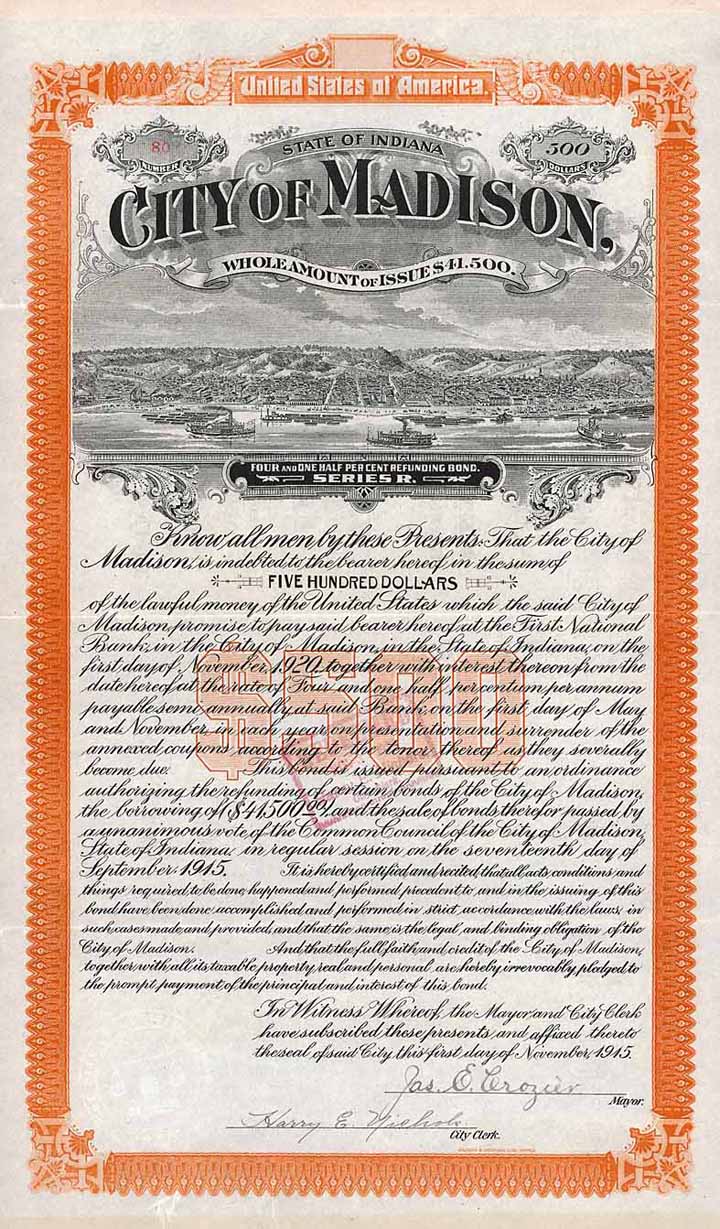 United States of America.
STATE OF INDIANA
80
NUMBER
500
DOLLARS
CITY OF MADISON.
WHOLE AMOUNT OF ISSUE $41,500.
FOUR AND ONE HALF PER CENT REFUNDING BOND.
SERIES R.
Know all men by these Presents: That the City of
Madison, is indebted to the bearer hereof in the sum of
FIVE HUNDRED DOLLARS
of the lawful money of the United States which the said City of
Madison promise to pay said bearer hereof at the First National
Bank, in the City of Madison, in the State of Indiana, on the
first day of November, 1920, together with interest thereon from the
date hereof at the rate of Four and one half per centum per annum
payable semi annually at said Bank, on the first day of May
and November, in each year on presentation and surrender of the
annexed coupons according to the tenor thereof as they severally
become due. This bond is issued pursuant to an ordinance
authorizing the refunding of certain bonds of the City of Madison,
the borrowing of ($41,500.00) and the sale of bonds therefor passed by
a unanimous vote of the Common Council of the City of Madison,
State of Indiana, in regular session on the seventeenth day of
September, 1915. It is hereby certified and recited that all acts conditions and
things required to be done, happened and performed precedent to and in the issuing of this
bond have been done, accomplished and performed in strict accordance with the laws, in
such cases made and provided, and that the same is the legal and binding obligation of the
City of Madison. And that the full faith and credit of the City of Madison,
together with all its taxable property, real and personal are hereby irrevocably pledged to
the prompt payment of the principal and interest of this bond.
$500
In Witness Whereof, the Mayor and City Clerk
have subscribed these presents, and affixed thereto
the seal of said City, this first day of November, 1915.
Jas. E. Crozier
Mayor.
Harry E. Nichols
City Clerk.